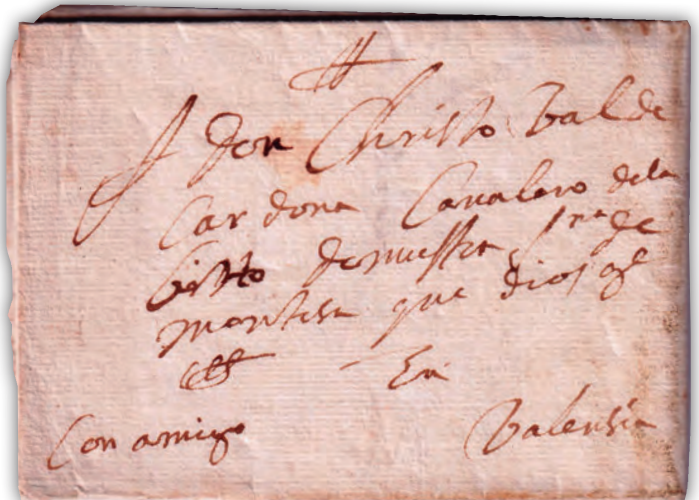 A don Christo Val de
Cardona Cavalero de la
bito de nuestra Sra de
montesa que dios ge
En
Con amigo Valensia